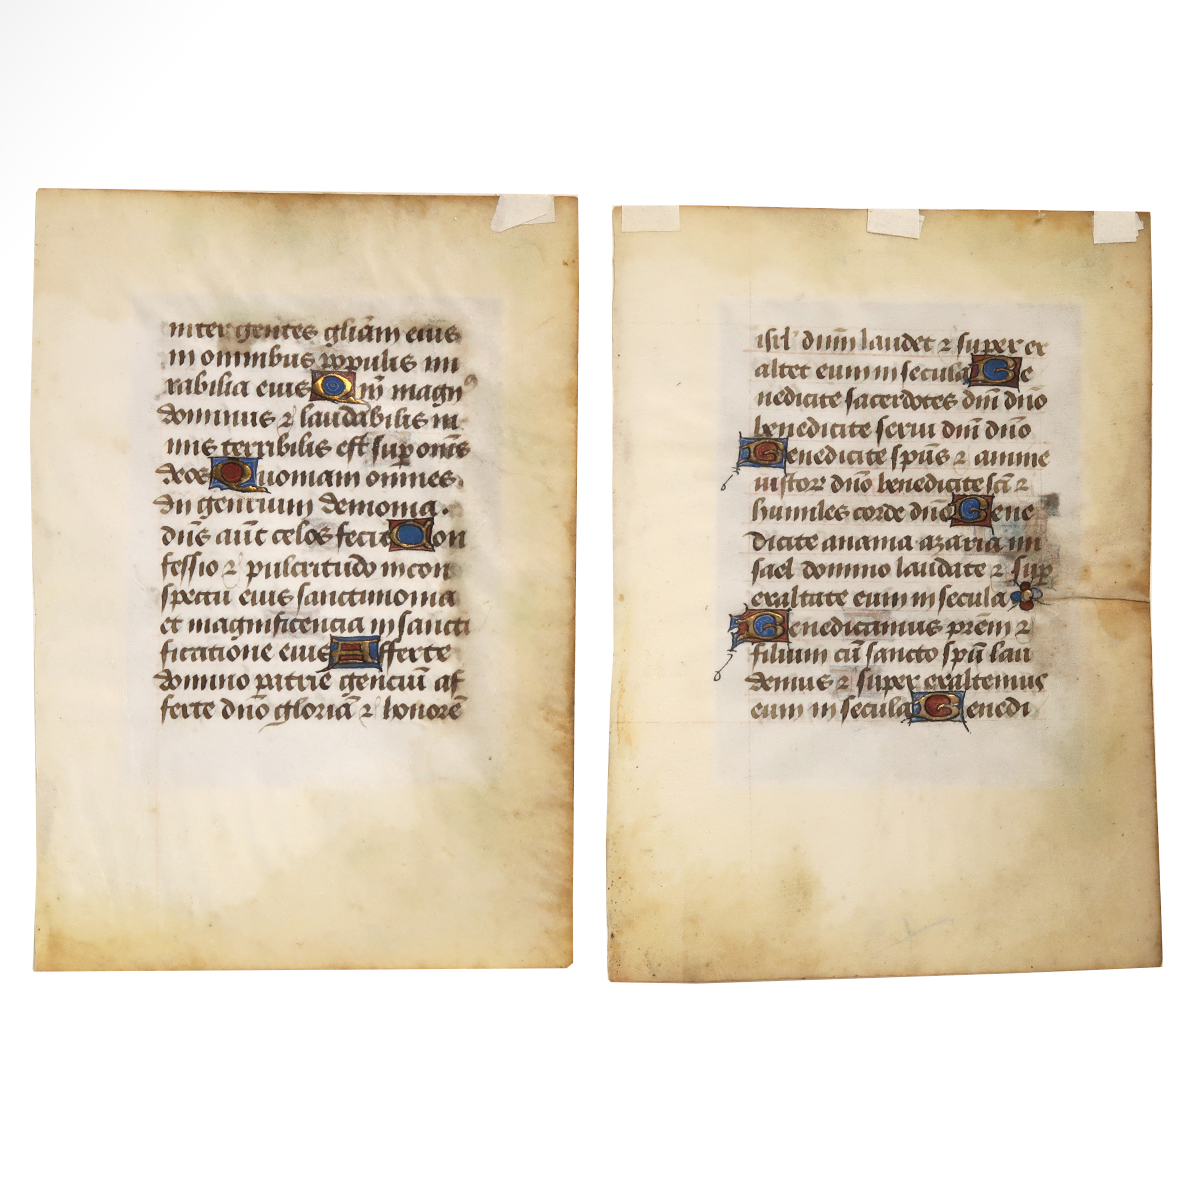 inter gentes gliām eius
in omnibus ppulis mi
rabilia eius Qm̄ magn⁹
dominus ⁊ laudabilis ni
mis terribilis est sup om̄s
deos Quoniam omnes
dii gentium demonia .
dn̄s aūt celos fecit Con
fessio ⁊ pulcritudo incon
spectu eius sanctimonia
et magnificencia in sancti
ficatione eius Afferte
domino patrie genciū af
ferte dn̄o gloriā ⁊ honorē
isrl' dnm̄ laudet ⁊ super ex
altet eum in secula Be
nedicite sacerdotes dnī dn̄o
benedicite serui dnī dn̄o
Benedicite spūs ⁊ anime
iustor dn̄o benedicite scī ⁊
humiles corde dn̄o Bene
dicite anania azaria mi
sael domino laudate ⁊ sup
exaltate eum in secula
Benedicamus prēm ⁊
filium cū sancto spū lau
demus ⁊ super exaltemus
eum in secula Benedi